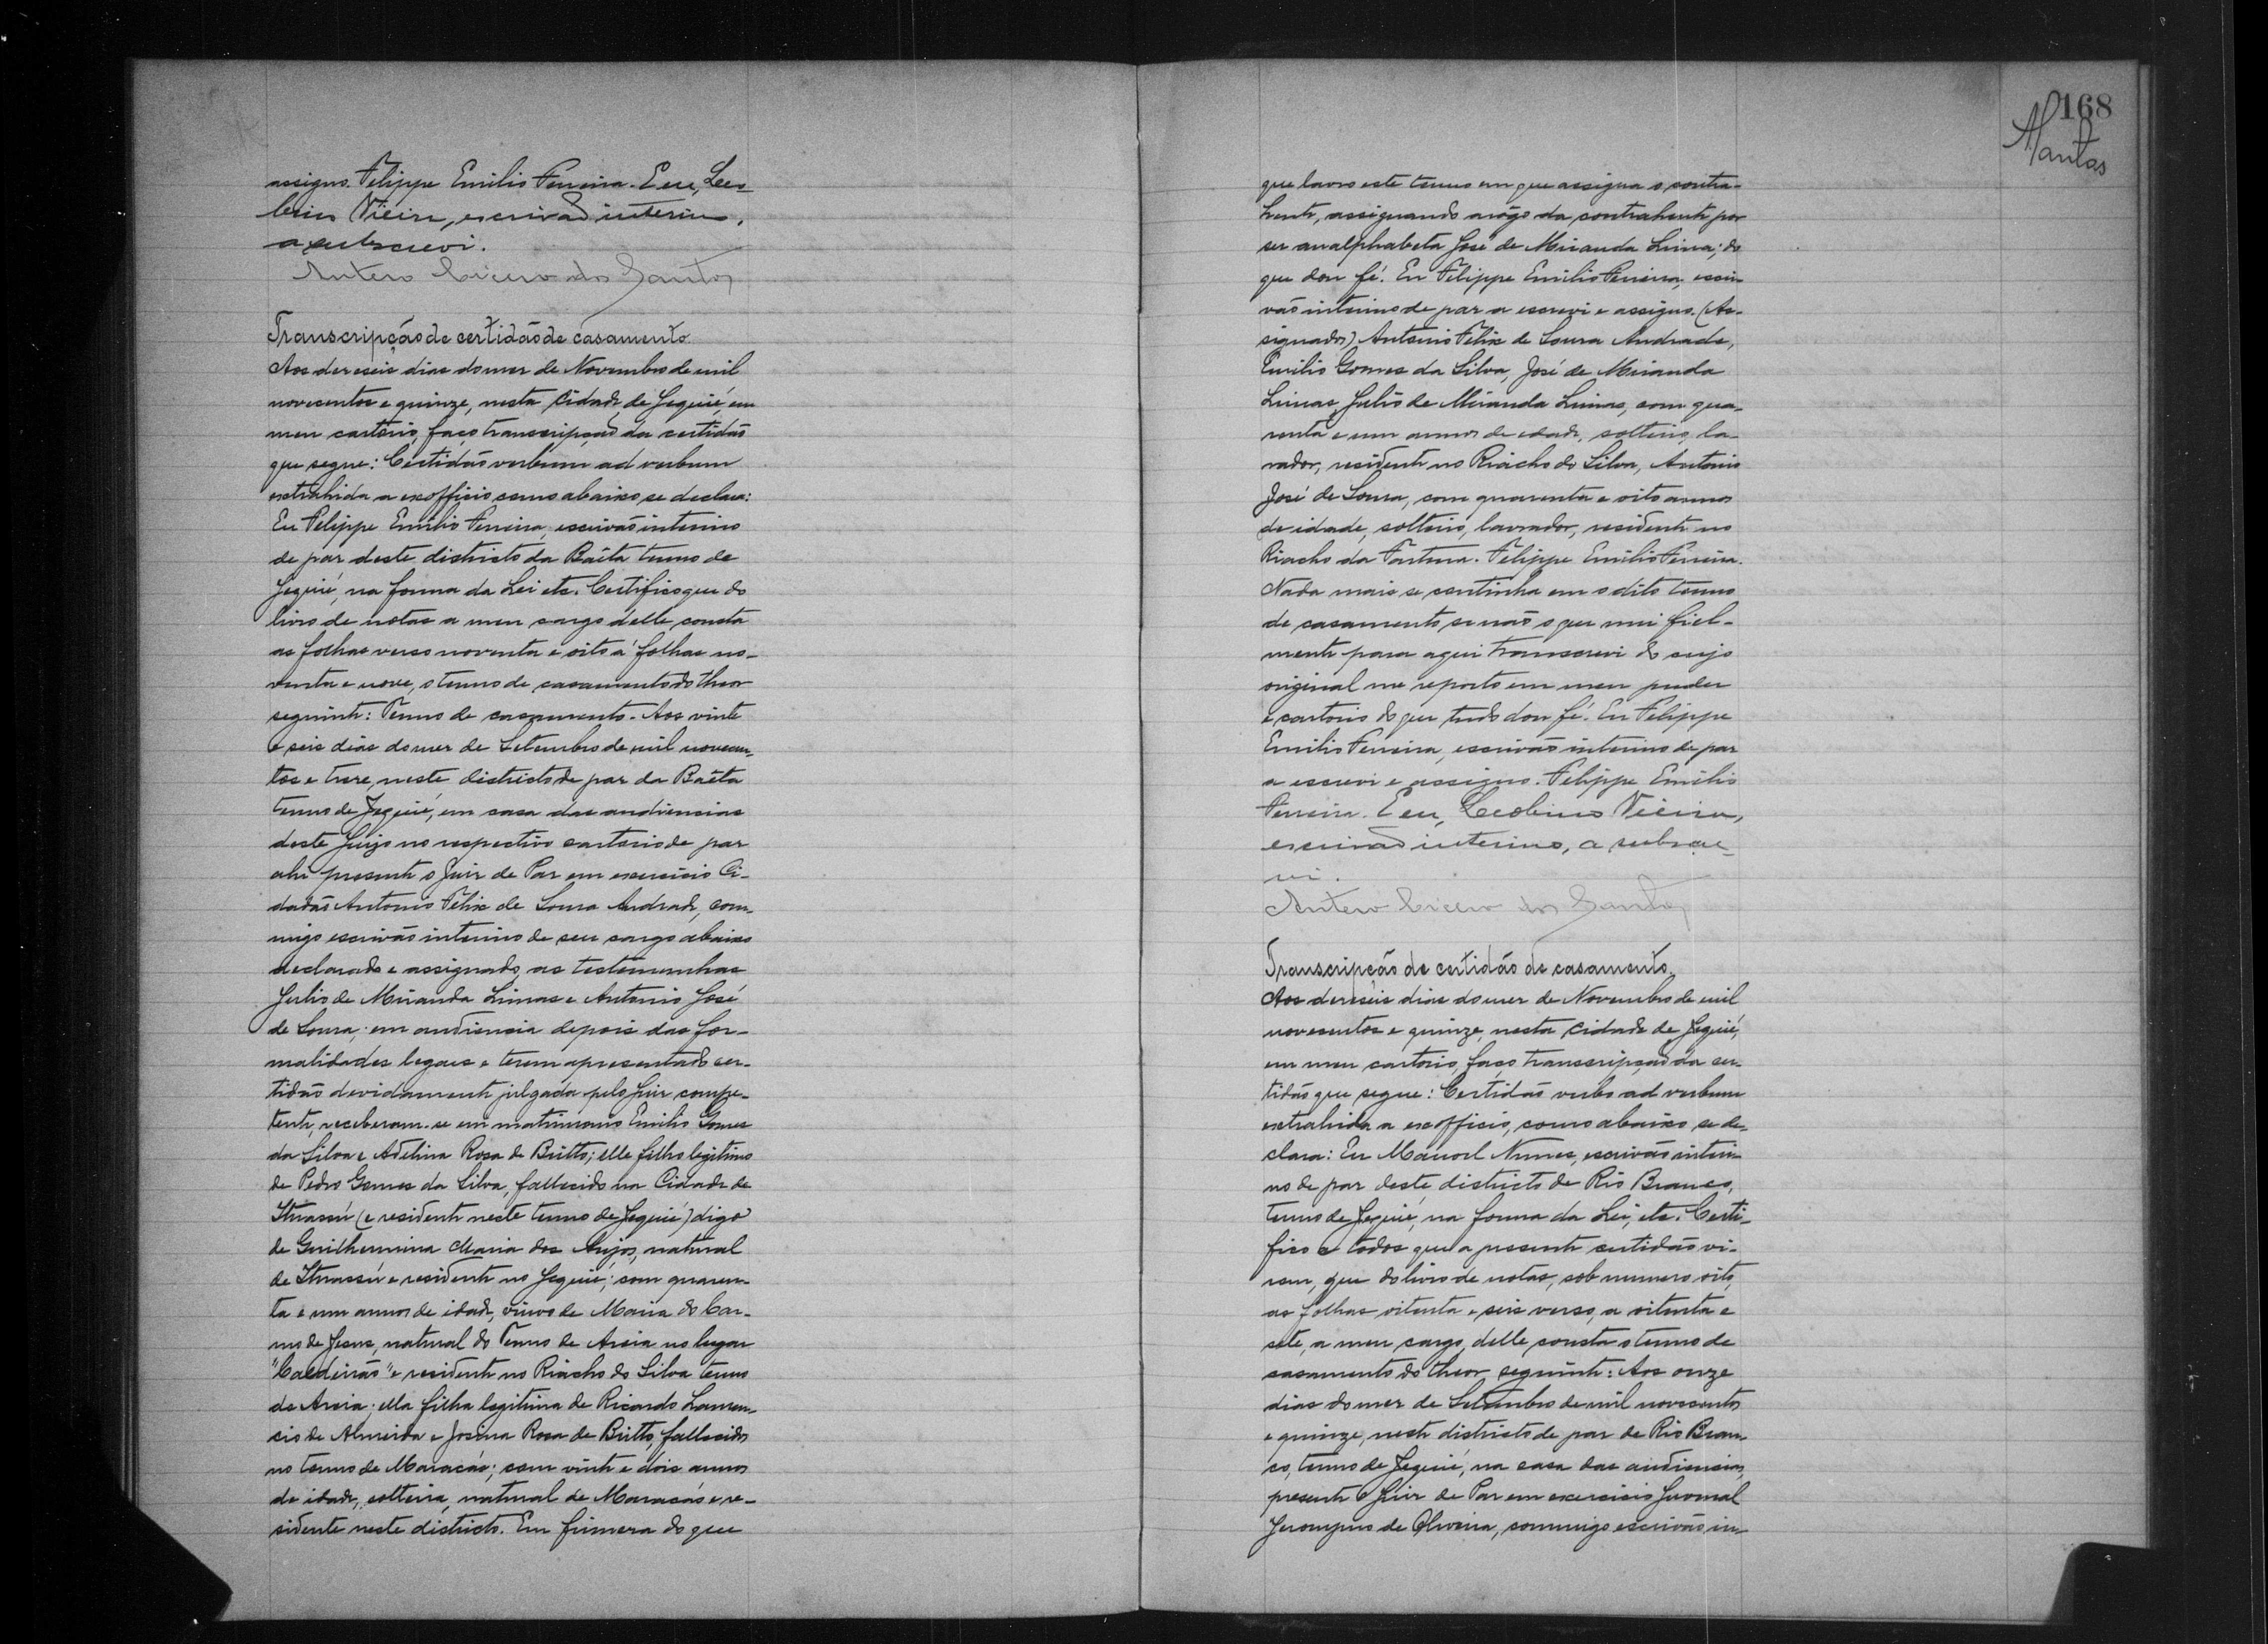 assigno. Felippe Emilio Ferreira. Eu, Leo-
lino Vieira, escrivão interino,
a subscrevi.
Antero Cicero dos Santos
Transcripção de certidão de casamento.
Aos dezeseis dias do mez de Novembro de mil
novecentos e quinze, nesta Cidade de Jequié, em
meu cartorio, faço transcripção da certidão
que segue: Certidão verbum ad verbum
extrahida a exofficio como abaixo se declara:
Eu Felippe Emilio Ferreira, escrivão interino
de paz deste districto da Baêta termo de
Jequié, na forma da Lei etc. Certifico que do
livro de notas a meu cargo delle consta
as folhas verso noventa e oito á folhas no-
venta e nove, o termo de casamento do theor
seguinte: Termo de casamento. Aos vinte
e seis dias do mez de Setembro de mil novecen-
tos e treze, neste districto de paz da Baêta
termo de Jequié, em casa das audiencias
deste Juizo no respectivo cartorio de paz
ahi presente o Juiz de Paz em exercicio Ci-
dadão Antonio Felix de Souza Andrade, com-
migo escrivão interino de seu cargo abaixo
declarado e assignado, as testemunhas
Julio de Miranda Limas e Antonio José
de Souza; em audiencia depois das for-
malidades legaes e terem apresentado cer-
tidão devidamente julgada pelo Juiz compe-
tente, receberam-se em matrimonio Emilio Gomes
da Silva e Adelina Rosa de Britto; elle filho legitimo
de Pedro Gomes da Silva, fallecido na Cidade de
Ituassú (e residente neste termo de Jequié) digo
de Guilhermina Maria dos Anjos, natural
de Ituassú e residente no Jequié; com quaren-
ta e um annos de idade, viuvo de Maria do Car-
mo de Jesus, natural do Termo de Areia no lugar
"Caldeirão" e residente no Riacho do Silva termo
de Areia; ella filha legitima de Ricardo
cio de Almeida e Josina Rosa de Britto, fallecidos
no termo de Maracás; com vinte e dois annos
de idade, solteira, natural de Maracás e re-
sidente neste districto. Em firmeza do que
168
que lavro este termo em que assigna o contra-
hente, assignando arôgo da contrahente por
ser analphabeta José de Miranda Lima; do
que dou fé. Eu Felippe Emilio Ferreira, escri-
vão interino de paz a escrevi e assigno. (As-
signados) Antonio Felix de Souza Andrade,
Emilio Gomes da Silva, José de Miranda
Limas, Julio de Miranda Limas, com qua-
renta e um annos de edade, solteiro, la-
vrador, residente no Riacho do Silva, Antonio
José de Souza, com quarenta e oito annos
de idade, solteiro, lavrador, residente no
Riacho da Fartura. Felippe Emilio Ferreira.
Nada mais se continha em o dito termo
de casamento se não o que mui fiel-
mente para aqui transcrevi do cujo
original me reporto em meu puder
e cartorio do que tudo dou fé. Eu Felippe
Emilio Ferreira, escrivão interino de paz
a escrevi e assigno. Felippe Emilio
Ferreira. Eu, Leolino Vieira,
escrivão interino, a subscre-
vi.
Antero Cicero dos Santos
Transcripção de certidão de casamento.
Aos dezeseis dias do mez de Novembro de mil
novecentos e quinze, nesta cidade de Jequié,
em meu cartorio, faço transcripção da cer-
tidão que segue: Certidão verbo ad verbum
extrahida a exofficio, como abaixo se de-
clara: Eu Manoel Nunes, escrivão interi-
no de paz deste districto de Rio Branco,
termo de Jequié, na forma da Lei, etc. Certi-
fico a todos que a presente certidão vi-
rem, que do livro de notas, sob numero oito,
as folhas oitenta e seis verso, a oitenta e
sete, a meu cargo, delle consta o termo de
casamento do theor seguinte: Aos onze
dias do mez de Setembro de mil novecentos
e quinze, neste districto de paz de Rio Bran-
co, termo de Jequié, na casa das audiencias,
presente o Juiz de Paz em exercicio Juvenal
Jeronymo de Oliveira, commigo escrivão in-